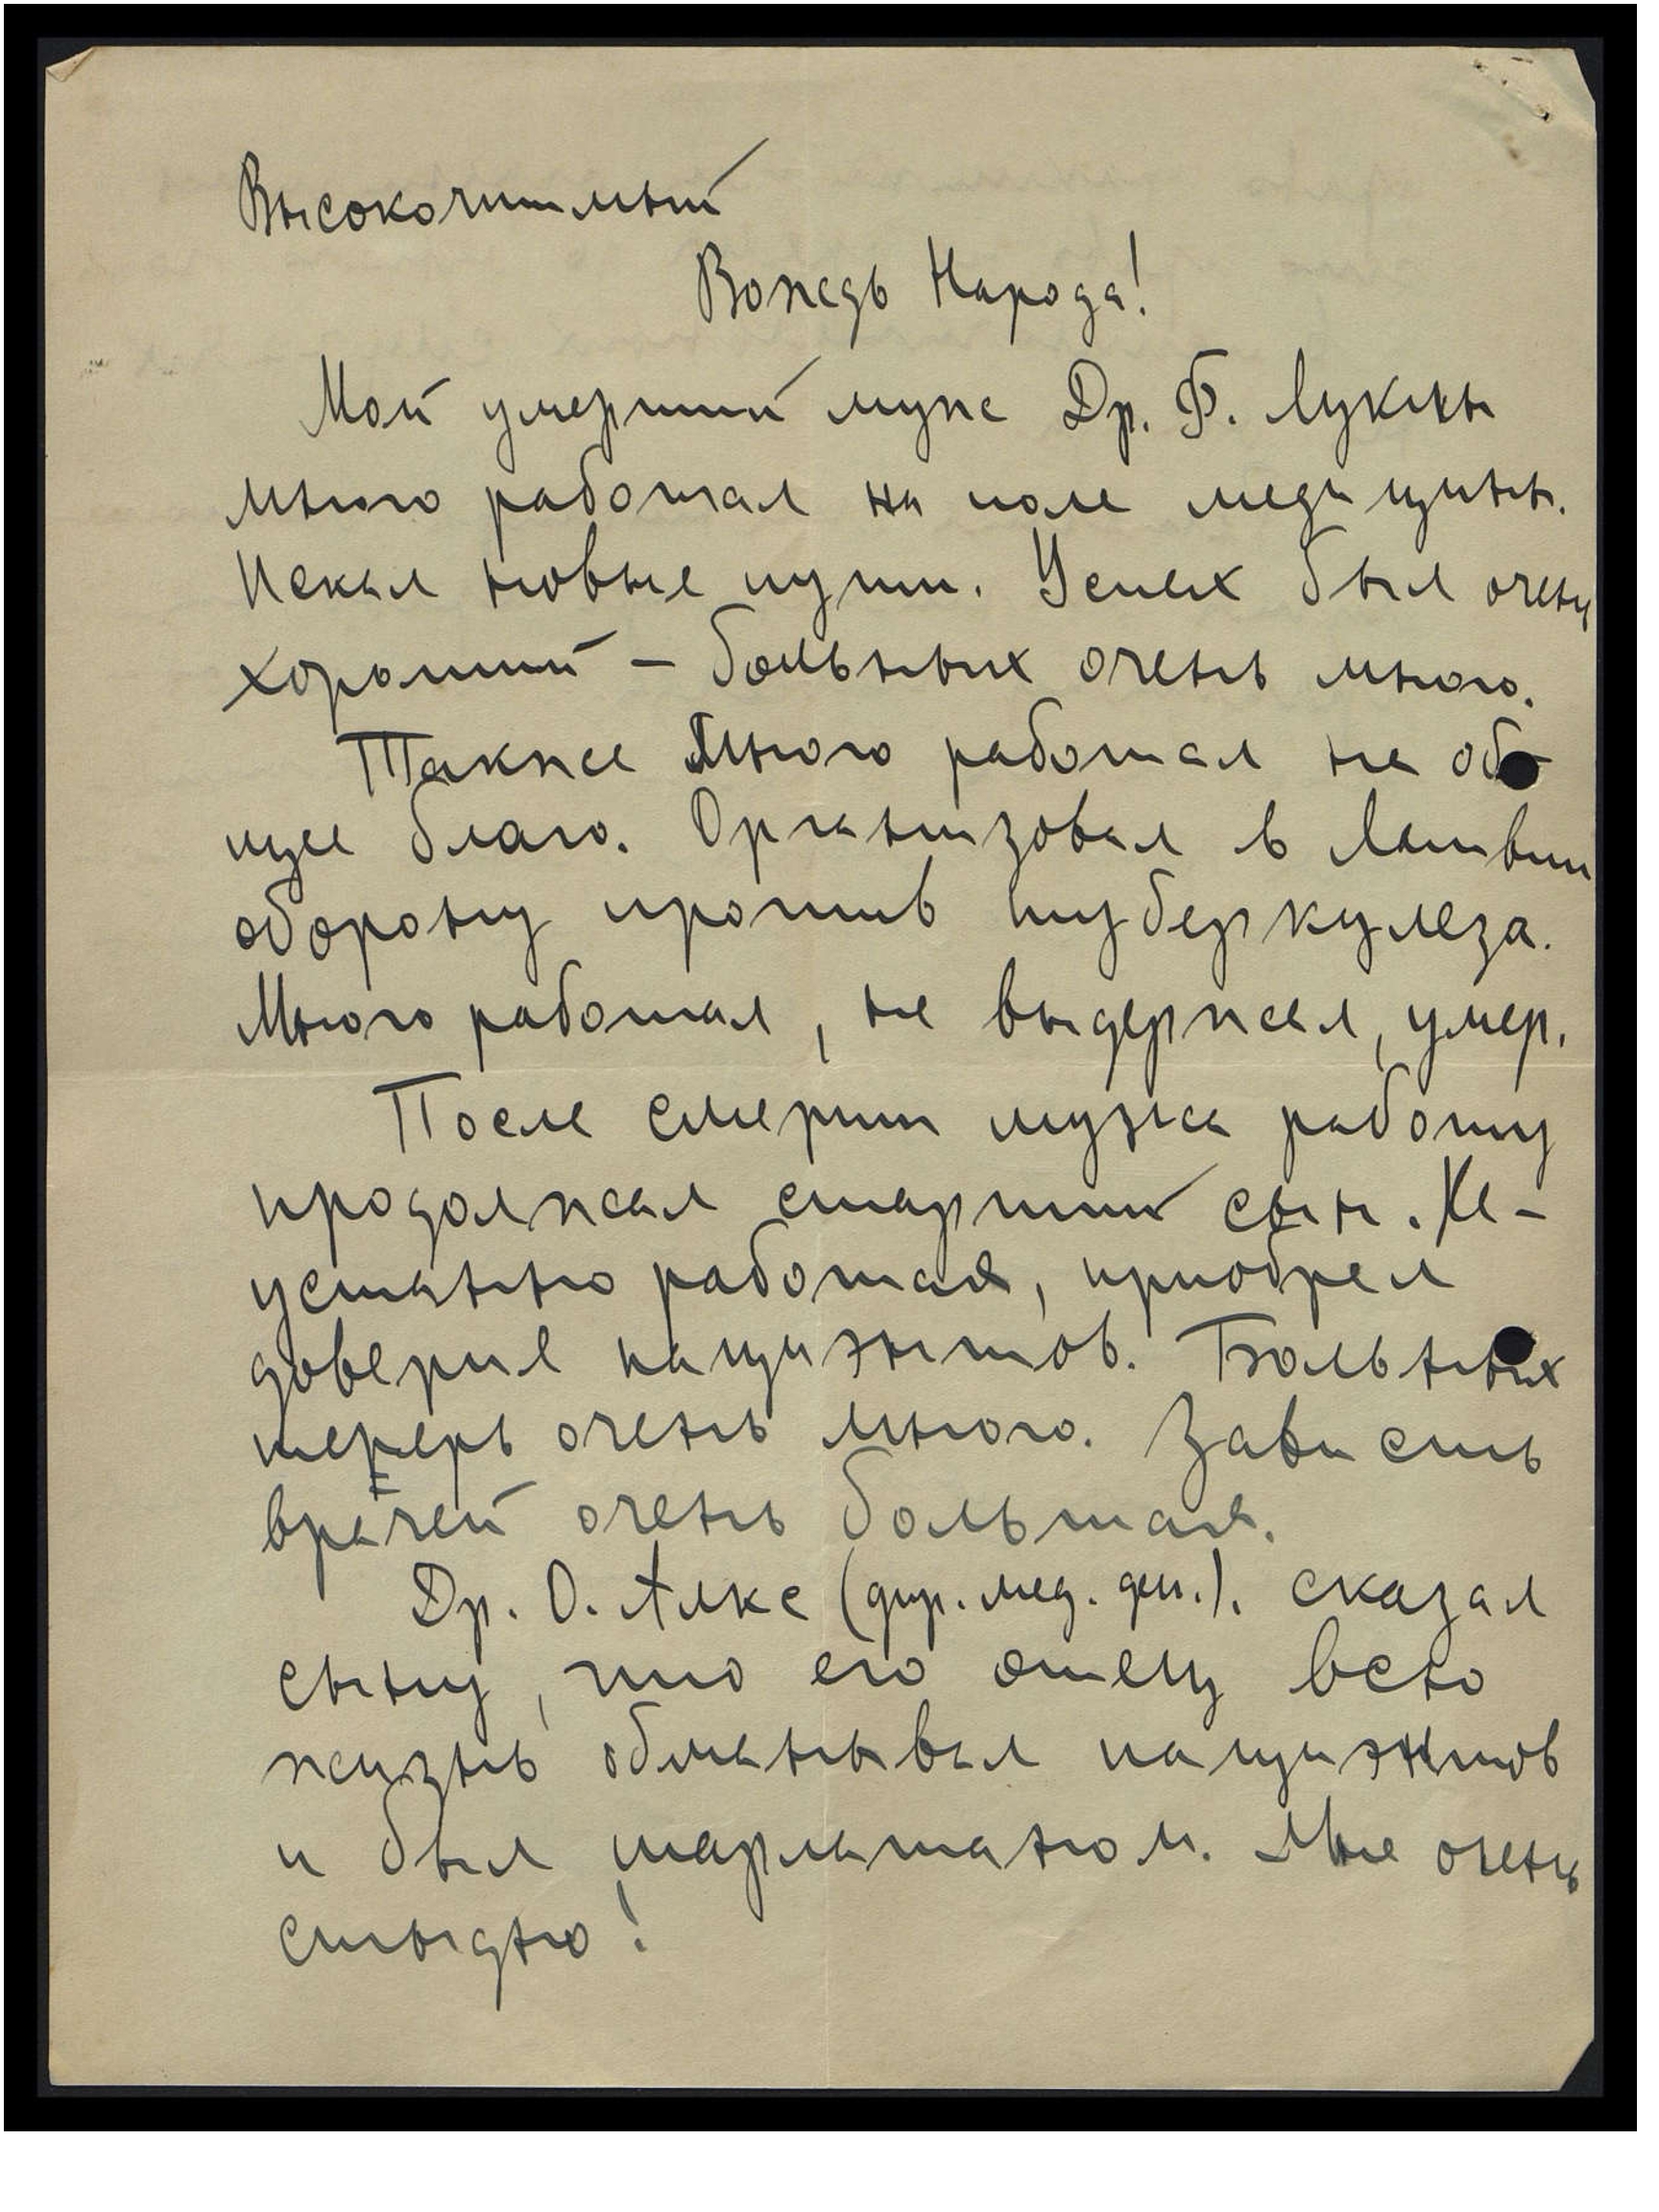 Высокочтимый
Вождь Народа!
Мой умерший муж Др. Ф. Лукинь
много работал на поле медицины.
Искал новые пути. Успех был очень
хороший – больных очень много.
Также много работал на об-
щее благо. Организовал в Латвии
оборону против туберкулеза.
Много работал, не выдержал, умер.
После смерти мужа работу
продолжал старший сын. Не-
устанно работая, приобрел
доверие пациэнтов. Больных
теперь очень много. Зависть
врачей очень большая.
Др. О. Алкс (дир. мед. деп.). сказал
сыну, что его отец всю
жизнь обманывал пациэнтов
и был шарлатаном. Мне очень
стыдно!